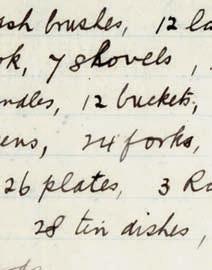 ash brushes, 12 la
ok, 7 shovels,
ndles, 12 buckets,
ens, 24 forks,
26 plates, 3 Ra
28 tin dishes,